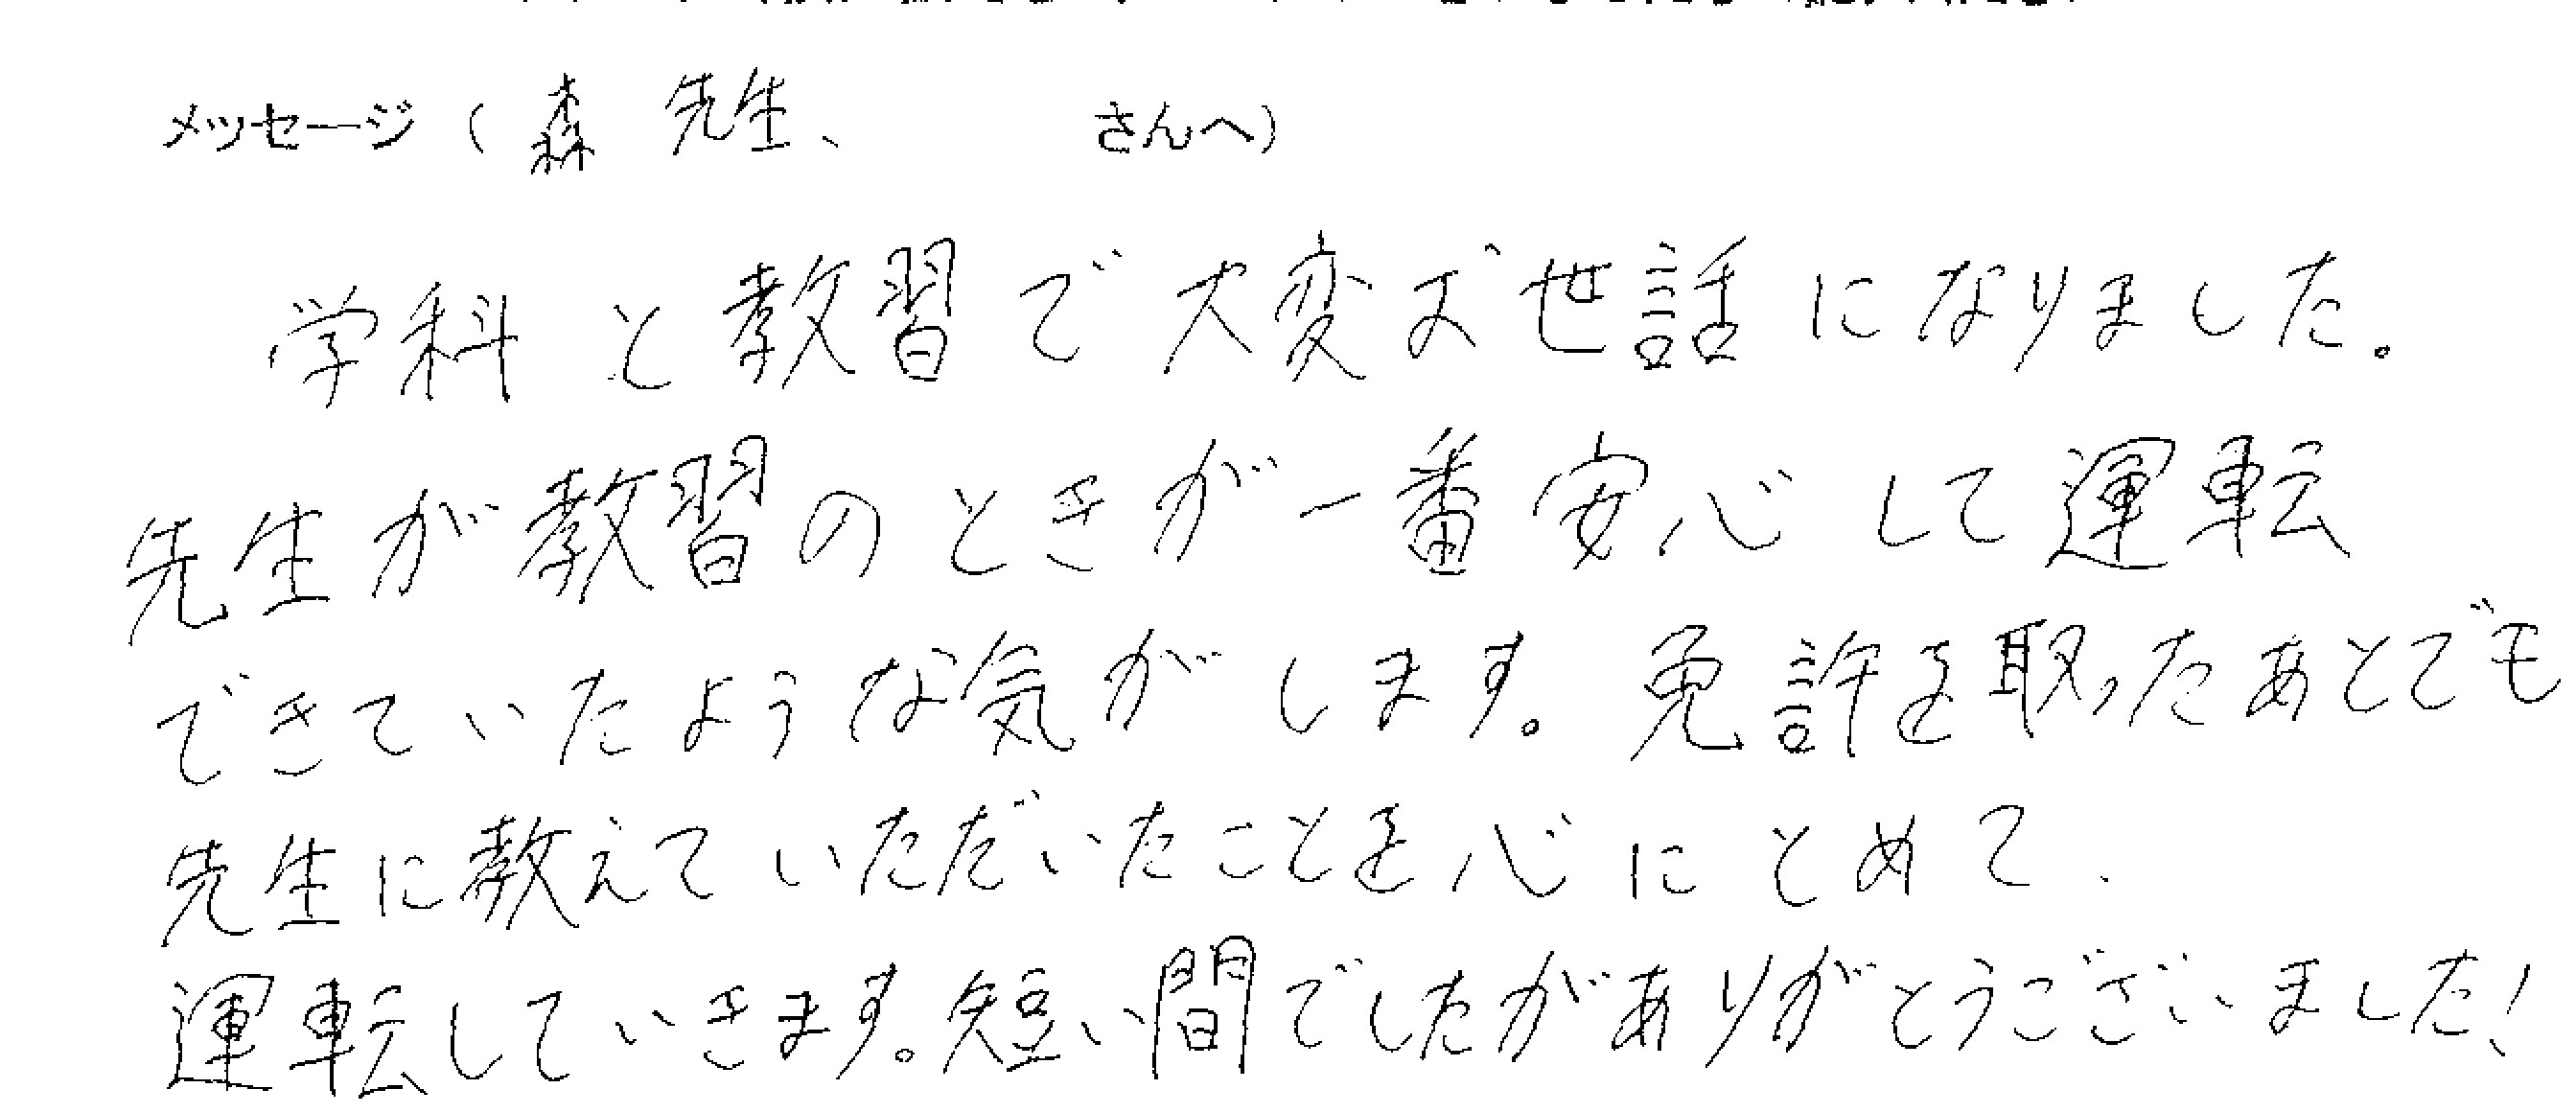 メッセージ(森 先生、 さんへ)
学科と教習で大変お世話になりました。
先生が教習のときが一番安心して運転
できていたような気がします。免許を取ったあとでも
先生に教えていただいたことを心にとめて、
運転していきます。短い間でしたがありがとうございました!